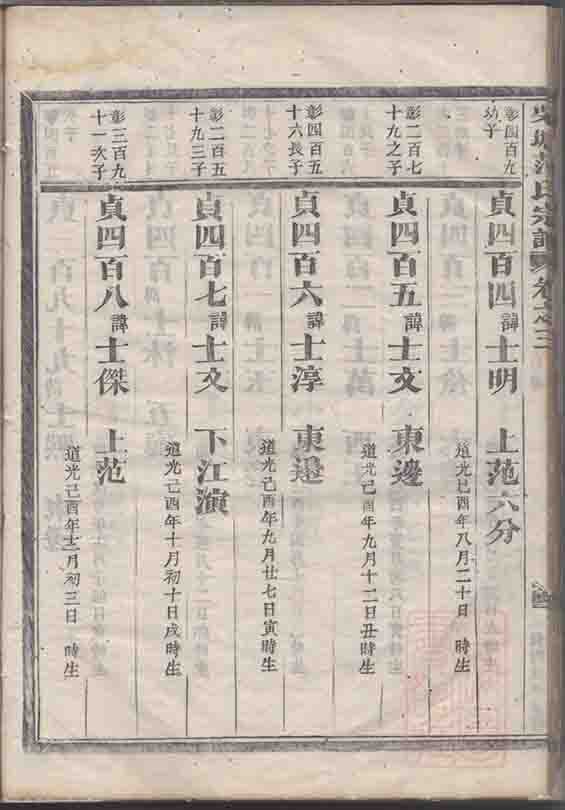 氏宗譜 卷之三
彰四百九
幼子
貞四百四 諱士明 上范六分
道光己酉年八月二十日 時生
彰二百七
十九之子
貞四百五 諱士文 東邊
道光己酉年九月十二日丑時生
彰四百五
十六長子
貞四百六 諱士淳 東邊
道光己酉年九月廿七日寅時生
彰二百五
十九三子
貞四百七 諱士文 下江濱
道光己酉年十月初十日戌時生
彰三百九
十一次子
貞四百八 諱士傑 上范
道光己酉年十二月初三日 時生